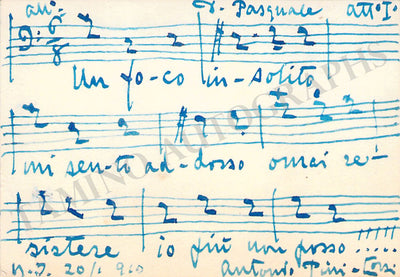 D. Pasquale att° I°
6
8
Un fo-co in-solito
mi sen-to ad-dosso omai re-
sistere io più non posso !!!!!
N.Y. 20/1 910 Antonio Pini-Corsi
TAMINO AUTOGRAPHS